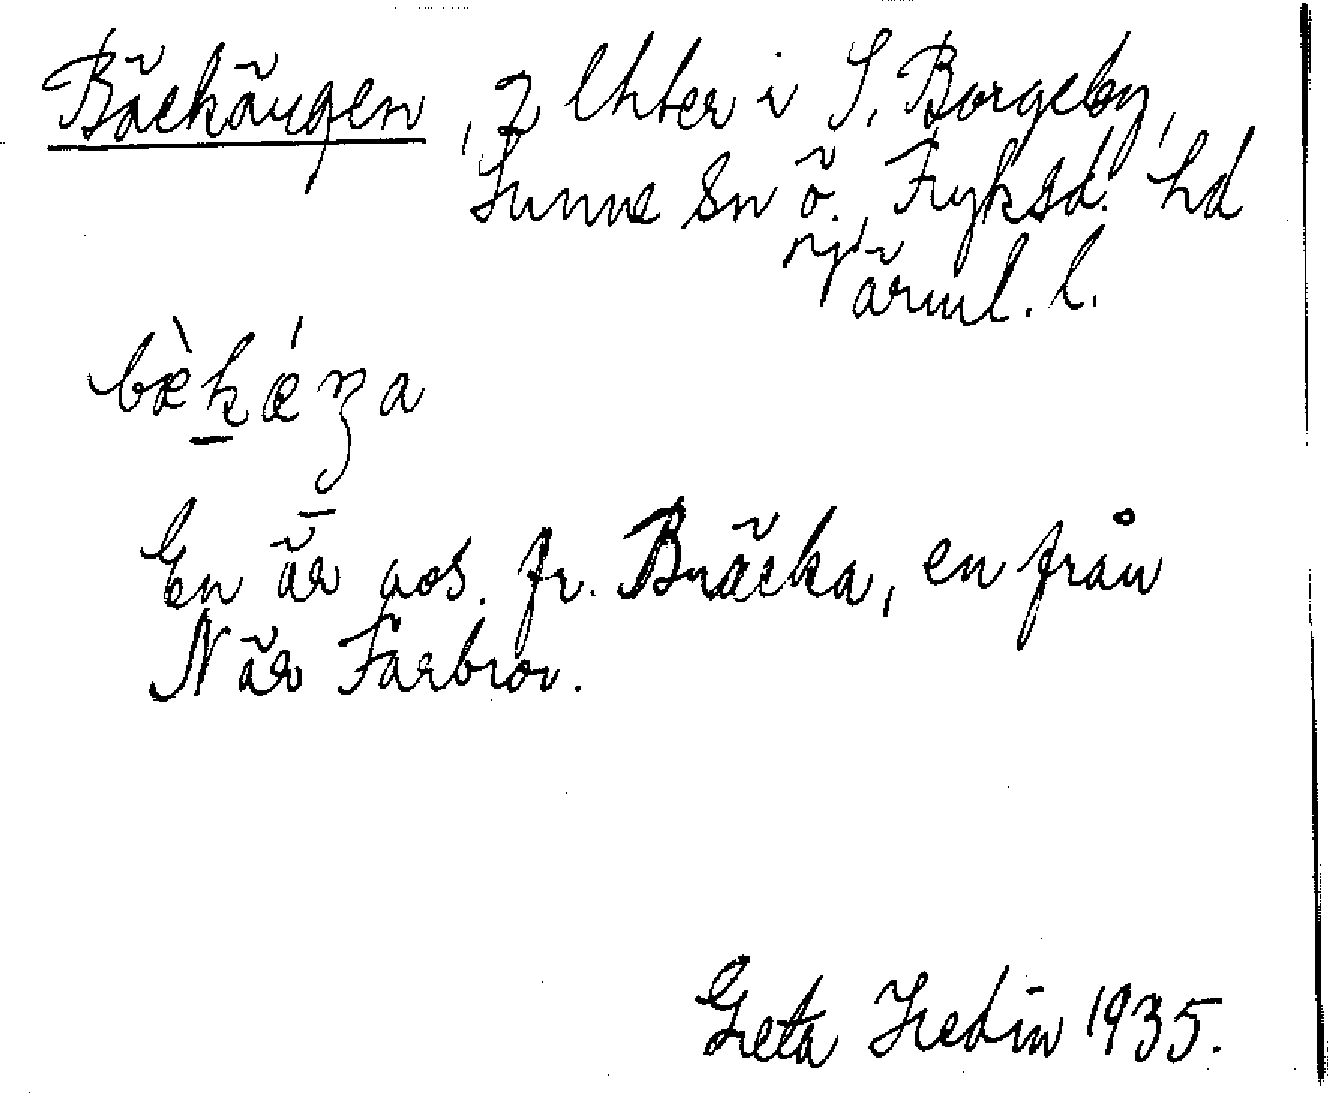 Bäckängen, 2 lhter i S. Borgeby,
Sunne sn ö., Fryksd. hd
Värml. l.
bækæŋa
En är avs. fr. Bräcka, en från
När Farbror.
Greta Hedin 1935.